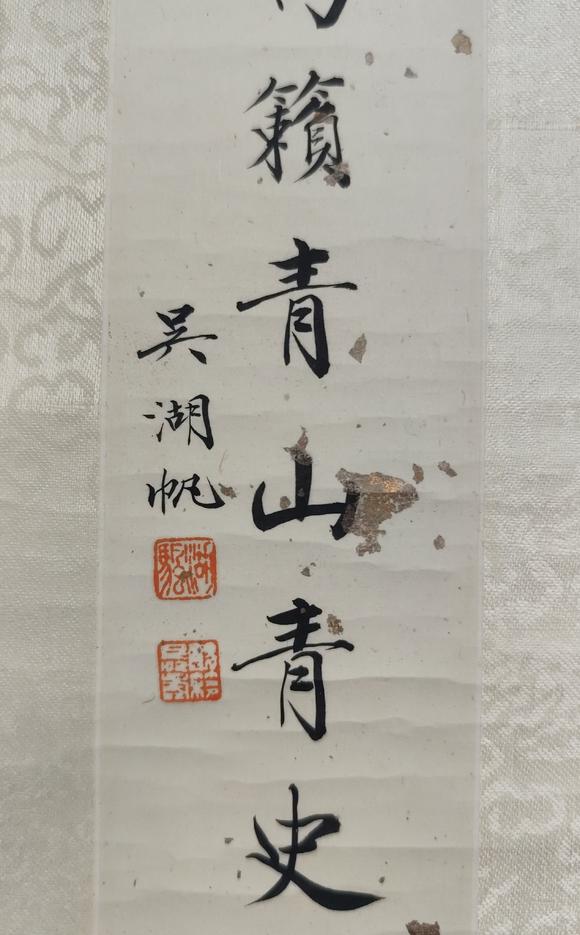 籟青山青史
吳湖帆